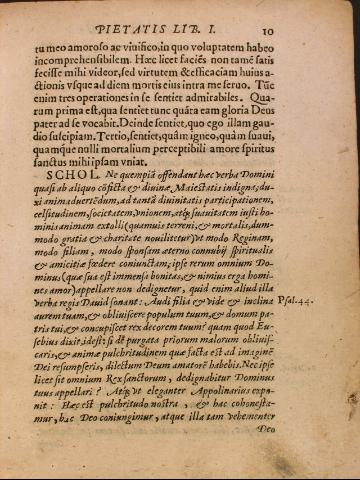 PIETATIS LIB. I. 10
tu meo amoroso ac viuifico, in quo voluptatem habeo
incomprehensibilem. Hæc licet faciẽs non tamẽ satis
fecisse mihi videor, sed virtutem & efficaciam huius a-
ctionis vsque ad diem mortis eius intra me seruo. Tũc
enim tres operationes in se sentiet admirabiles. Qua-
rum prima est, qua sentiet tunc quãta eam gloria Deus
pater ad se vocabit. Deinde sentiet, quo ego illam gau-
dio suscipiam. Tertio, sentiet, quàm igneo, quàm suaui,
quamque nulli mortalium perceptibili amore spiritus
sanctus mihi ipsam vniat.
SCHOL. Ne quempiã offendant hæc verba Domini
quasi ab aliquo cõficta & diuinæ Maiestatis indigna; du-
xi animaduertẽdum, ad tantã diuinitatis participationem,
celsitudinem, societatem, vnionem, atq; suauitatem iusti ho-
minis animam extolli (quamuis terreni, & mortalis, dum-
modo gratia & charitate nouilitetur) vt modo Reginam,
modo filiam, modo sponsam æterno connubij spiritualis
& amicitiæ fœdere coniunctam, ipse rerum omnium Do-
minus (quæ sua est immensa bonitas, & nimius erga homi-
nes amor) appellare non dedignetur, quid enim aliud illa
verba regis Dauid sonant: Audi filia & vide & inclina Psal. 44.
aurem tuam, & obliuiscere populum tuum, & domum pa-
tris tui, & concupiscet rex decorem tuum? quam quod Eu-
sebius dixit, idest: si dẽ purgata priorum malorum obliuis-
caris, & animæ pulchritudinem quæ facta est ad imaginẽ
Dei resumpseris, dilectum Deum amatorẽ habebis. Nec ipse
licet sit omnium Rex sanctorum, dedignabitur Dominus
tuus appellari? Atq; vt eleganter Appolinarius expo-
nit: Hæc est pulchritudo nostra, & hac cohonesta-
mur, hac Deo coniungimur, atque illa tam vehementer
Deo